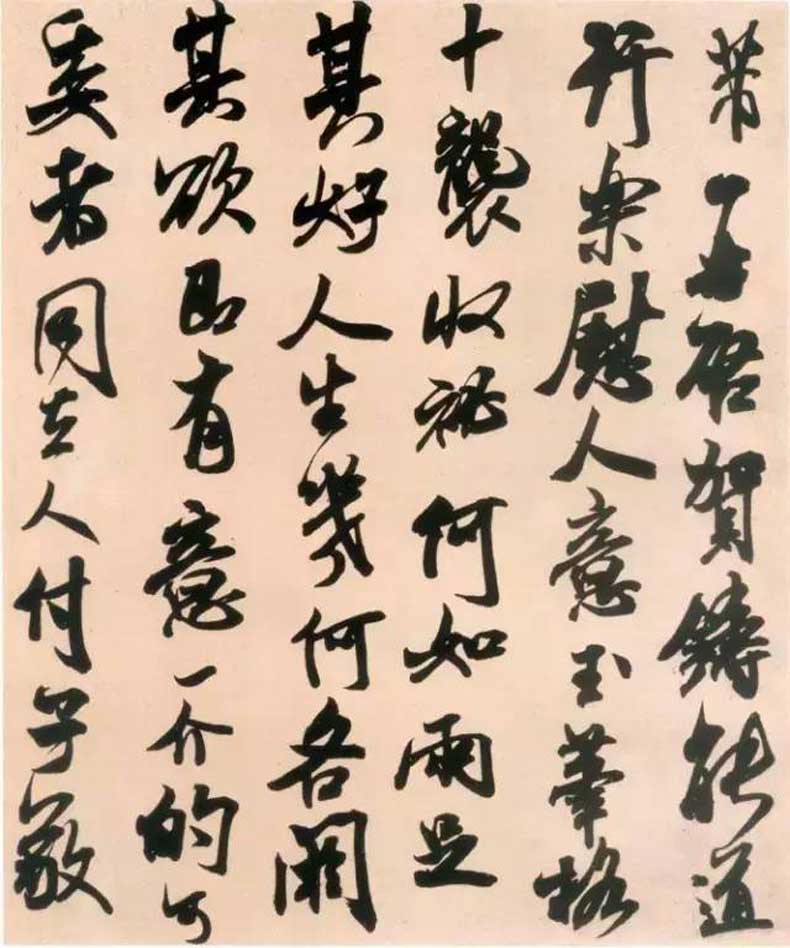 芾再啓賀鑄能道
行樂慰人意玉筆格
十襲收秘何如兩足
其好人生幾何各闕
其欲即有意一介的可
委者同去人付子敬